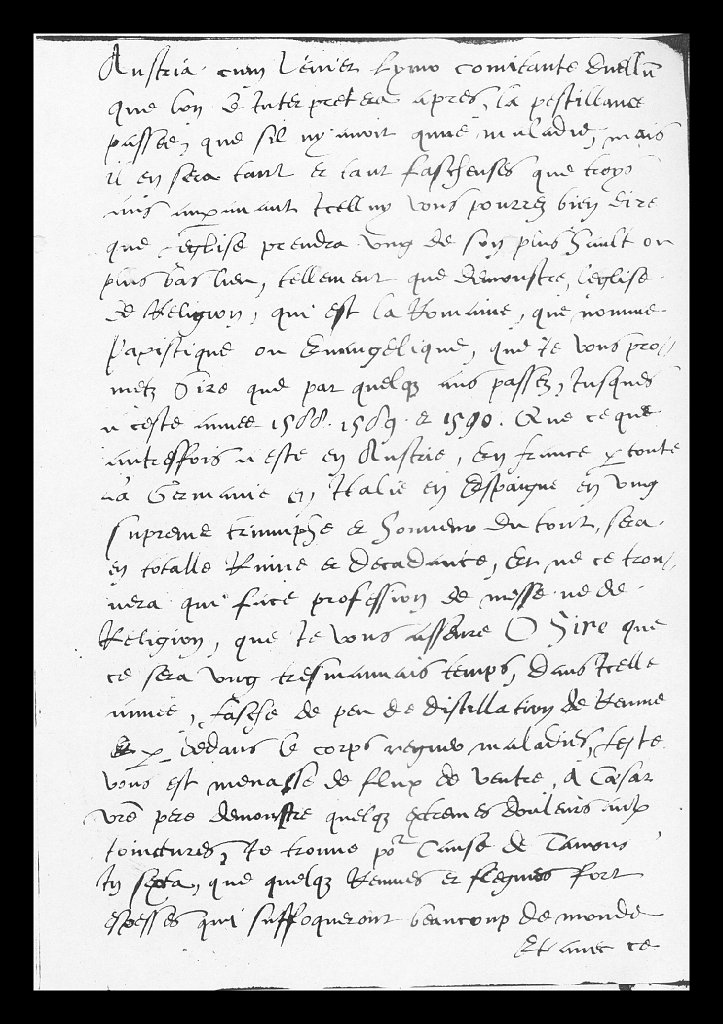 Austria. cum levier Lymo comitante duellū
que lon d Interpretera apres, la pestillance
passee, que sil ny avoit qune maladie, mais
il en sera tant et tant fascheuses que troys
ans auparavant Icelluy vous pourrez bien dire
que leglise prendra ung de son plus hault ou
plus bas lieu, tellement que demonstre, leglise.
de Religion, qui est la Romaine, que nomme
Papistique ou Evangelique, que Je vous pro-
metz Sire que par quelqz ans passez, Jusques
a ceste annee 1588. 1589. et 1590. Que ce que
autreffois a este en Austrie, En france et toute
la Germanie en, Italie en Espaigne en ung
supreme triumphe et honneur du tout, sera
en totalle Ruine et decadance, Et ne ce trou-
vera qui face profession de messe ne de
Religion, que Je vous asseure O Sire que
ce sera ung tresmauvais temps, Dans Icelle
annee, fasche de peu de distillation de Reume
et dedans le corps maladies, teste
vous est menasse de flux de ventre, a Cæsar
vrē pere demonstre quelqz extremes douleurs aux
Joinctures, Je trouve po^r Cause de
In sexta, que quelqz Reumes et flegmes fort
espesses qui suffoqueront beaucoup de monde
Et avec ce